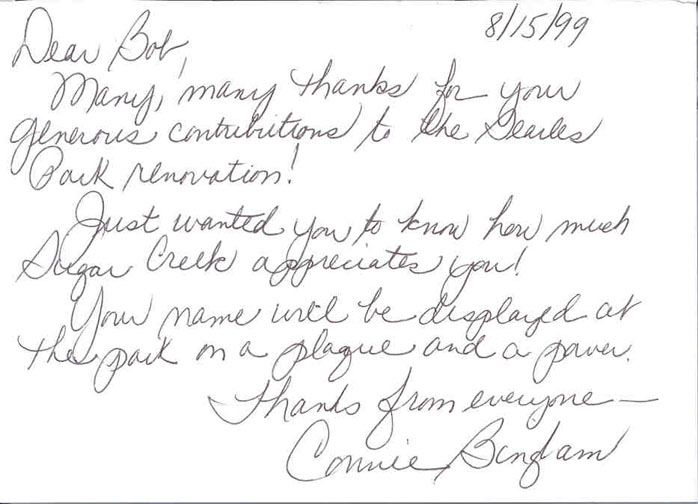 8/15/99
Dear Bob,
Many, many thanks for your
generous contributions to the Searles
Park renovation!
Just wanted you to know how much
Sugar Creek appreciates you!
Your name will be displayed at
the park on a plaque and a paver.
Thanks from everyone—
Connie Bingham